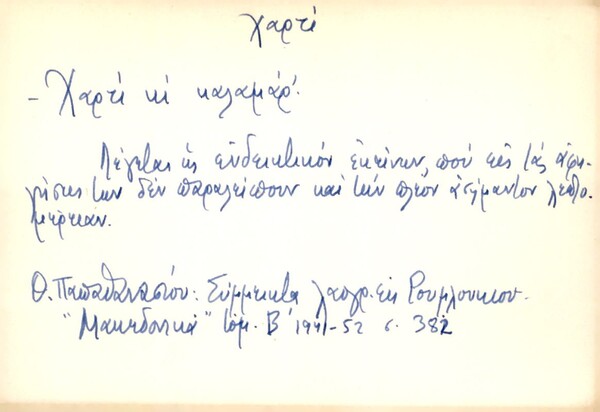 Χαρτί
- Χαρτί κι καλαμάρ'.
Λέγεται ὡς ἐνδεικτικόν ἐκείνων, πού εἰς τάς ἀφη-
γήσεις των δέν παραλείπουν καί τήν πλέον ἀσήμαντον λεπτο-
μέρειαν.
Θ. Παπαθανασίου: Σύμμεικτα λαογρ. ἐκ Ρουμλουκίου.
"Μακεδονικά" τόμ. Β' 1941-52 σ. 382